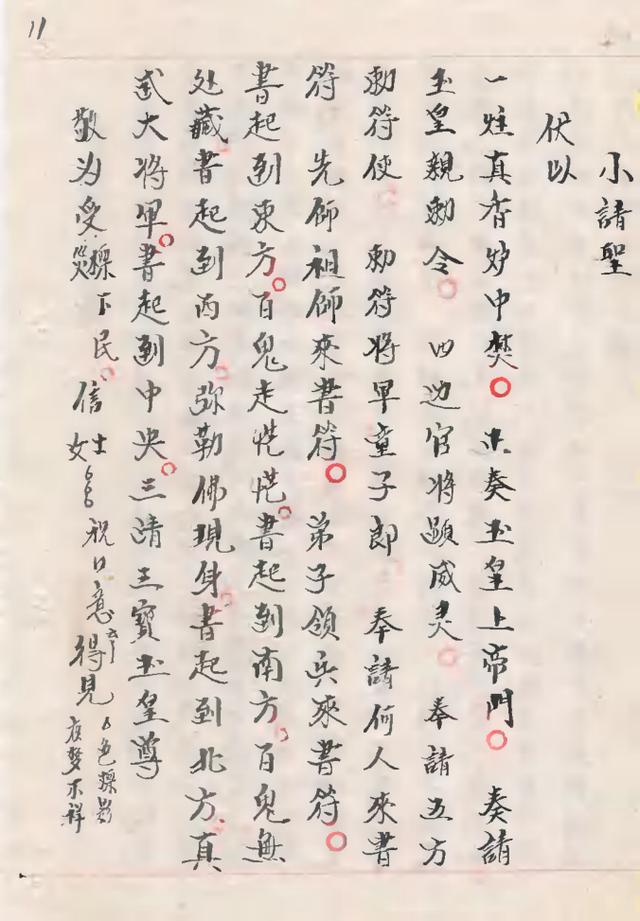 11
小請聖
伏以
一炷真香炉中焚。上奏玉皇上帝門。奏請
玉皇親勅令。四边官将顕威灵。奉請五方
勅符使 勅符将軍童子郎 奉請何人来書
符 先师祖师來書符。弟子领兵來書符。
書起到東方。百鬼走忙忙。書起到南方。百鬼無
处藏書起到西方。弥勒佛現身書起到北方。真
武大将軍。書起到中央。三清三寶玉皇尊
敬为受災下民。信士女 祝口意得見色影夜梦不祥